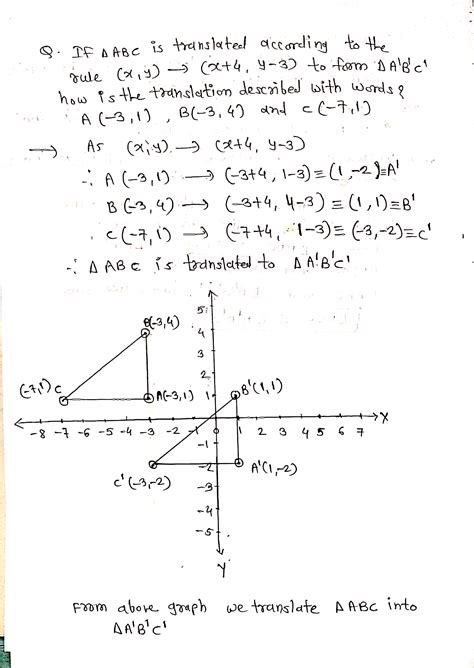 Q. IF △ABC is translated according to the
rule (x,y) → (x+4, y-3) to form △A'B'C'
how is the translation described with words?
A (-3,1) , B(-3,4) and C(-7,1)
→ As (x,y) → (x+4, y-3)
∴ A (-3,1) → (-3+4, 1-3) ≡ (1,-2)≡A'
B (-3,4) → (-3+4, 4-3) ≡ (1,1)≡B'
C (-7,1) → (-7+4, 1-3) ≡ (-3,-2)≡C'
∴ △ABC is translated to △A'B'C'
5
B(-3,4)
4
3
2
(-7,1) C
A(-3,1)
1
B'(1,1)
X
-8 -7 -6 -5 -4 -3 -2 -1 0 1 2 3 4 5 6 7
-1
C'(-3,-2)
-2
A'(1,-2)
-3
-4
-5
Y
From above graph we translate △ABC into
△A'B'C'